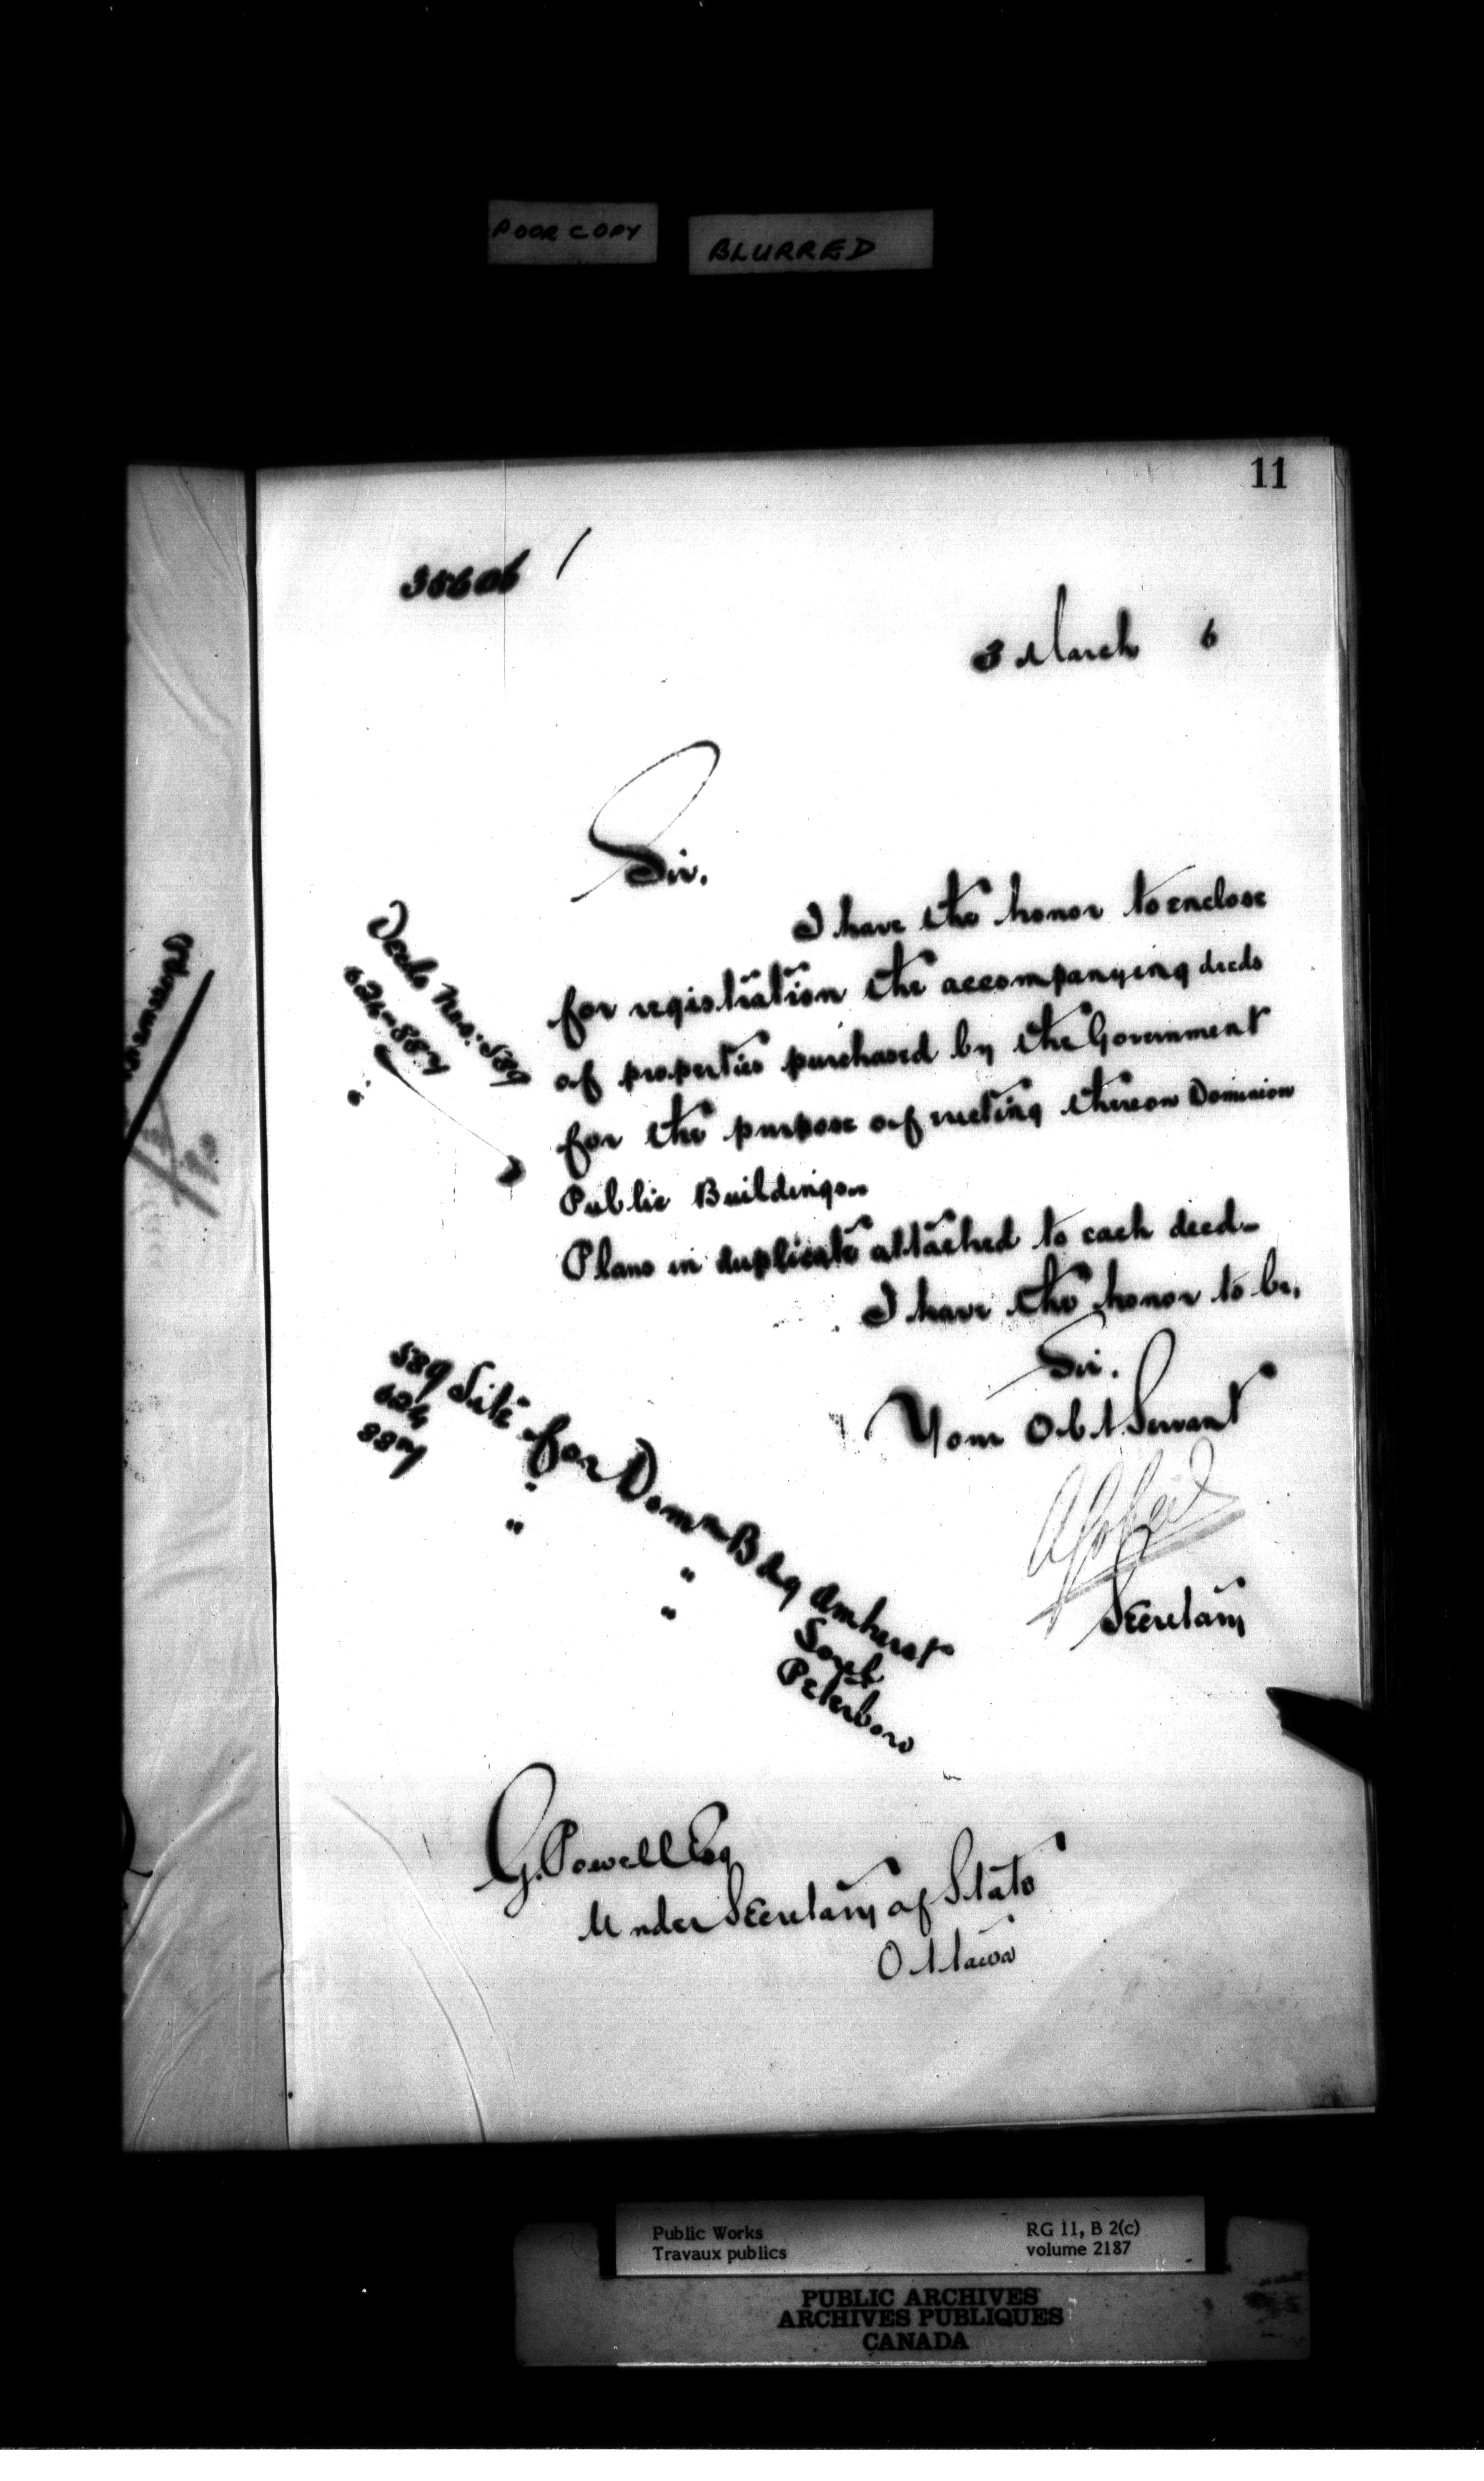 POOR COPY
BLURRED
11
35606
3 March 6
Sir.
I have the honor to enclose
for registration the accompanying deeds
of properties purchased by the Government
for the purpose of erecting thereon Dominion
Public Buildings
Plans in duplicate attached to each deed
I have the honor to be,
Sir.
Your Obt Servant
Secretary
Deeds Nos: 589
624-887
589 Site for Domn Bdg Amherst
624 " " Sorel
887 " " Peterboro
G. Powell Esq
Under Secretary of State
Ottawa
Public Works
Travaux publics
RG 11, B 2(c)
volume 2187
PUBLIC ARCHIVES
ARCHIVES PUBLIQUES
CANADA